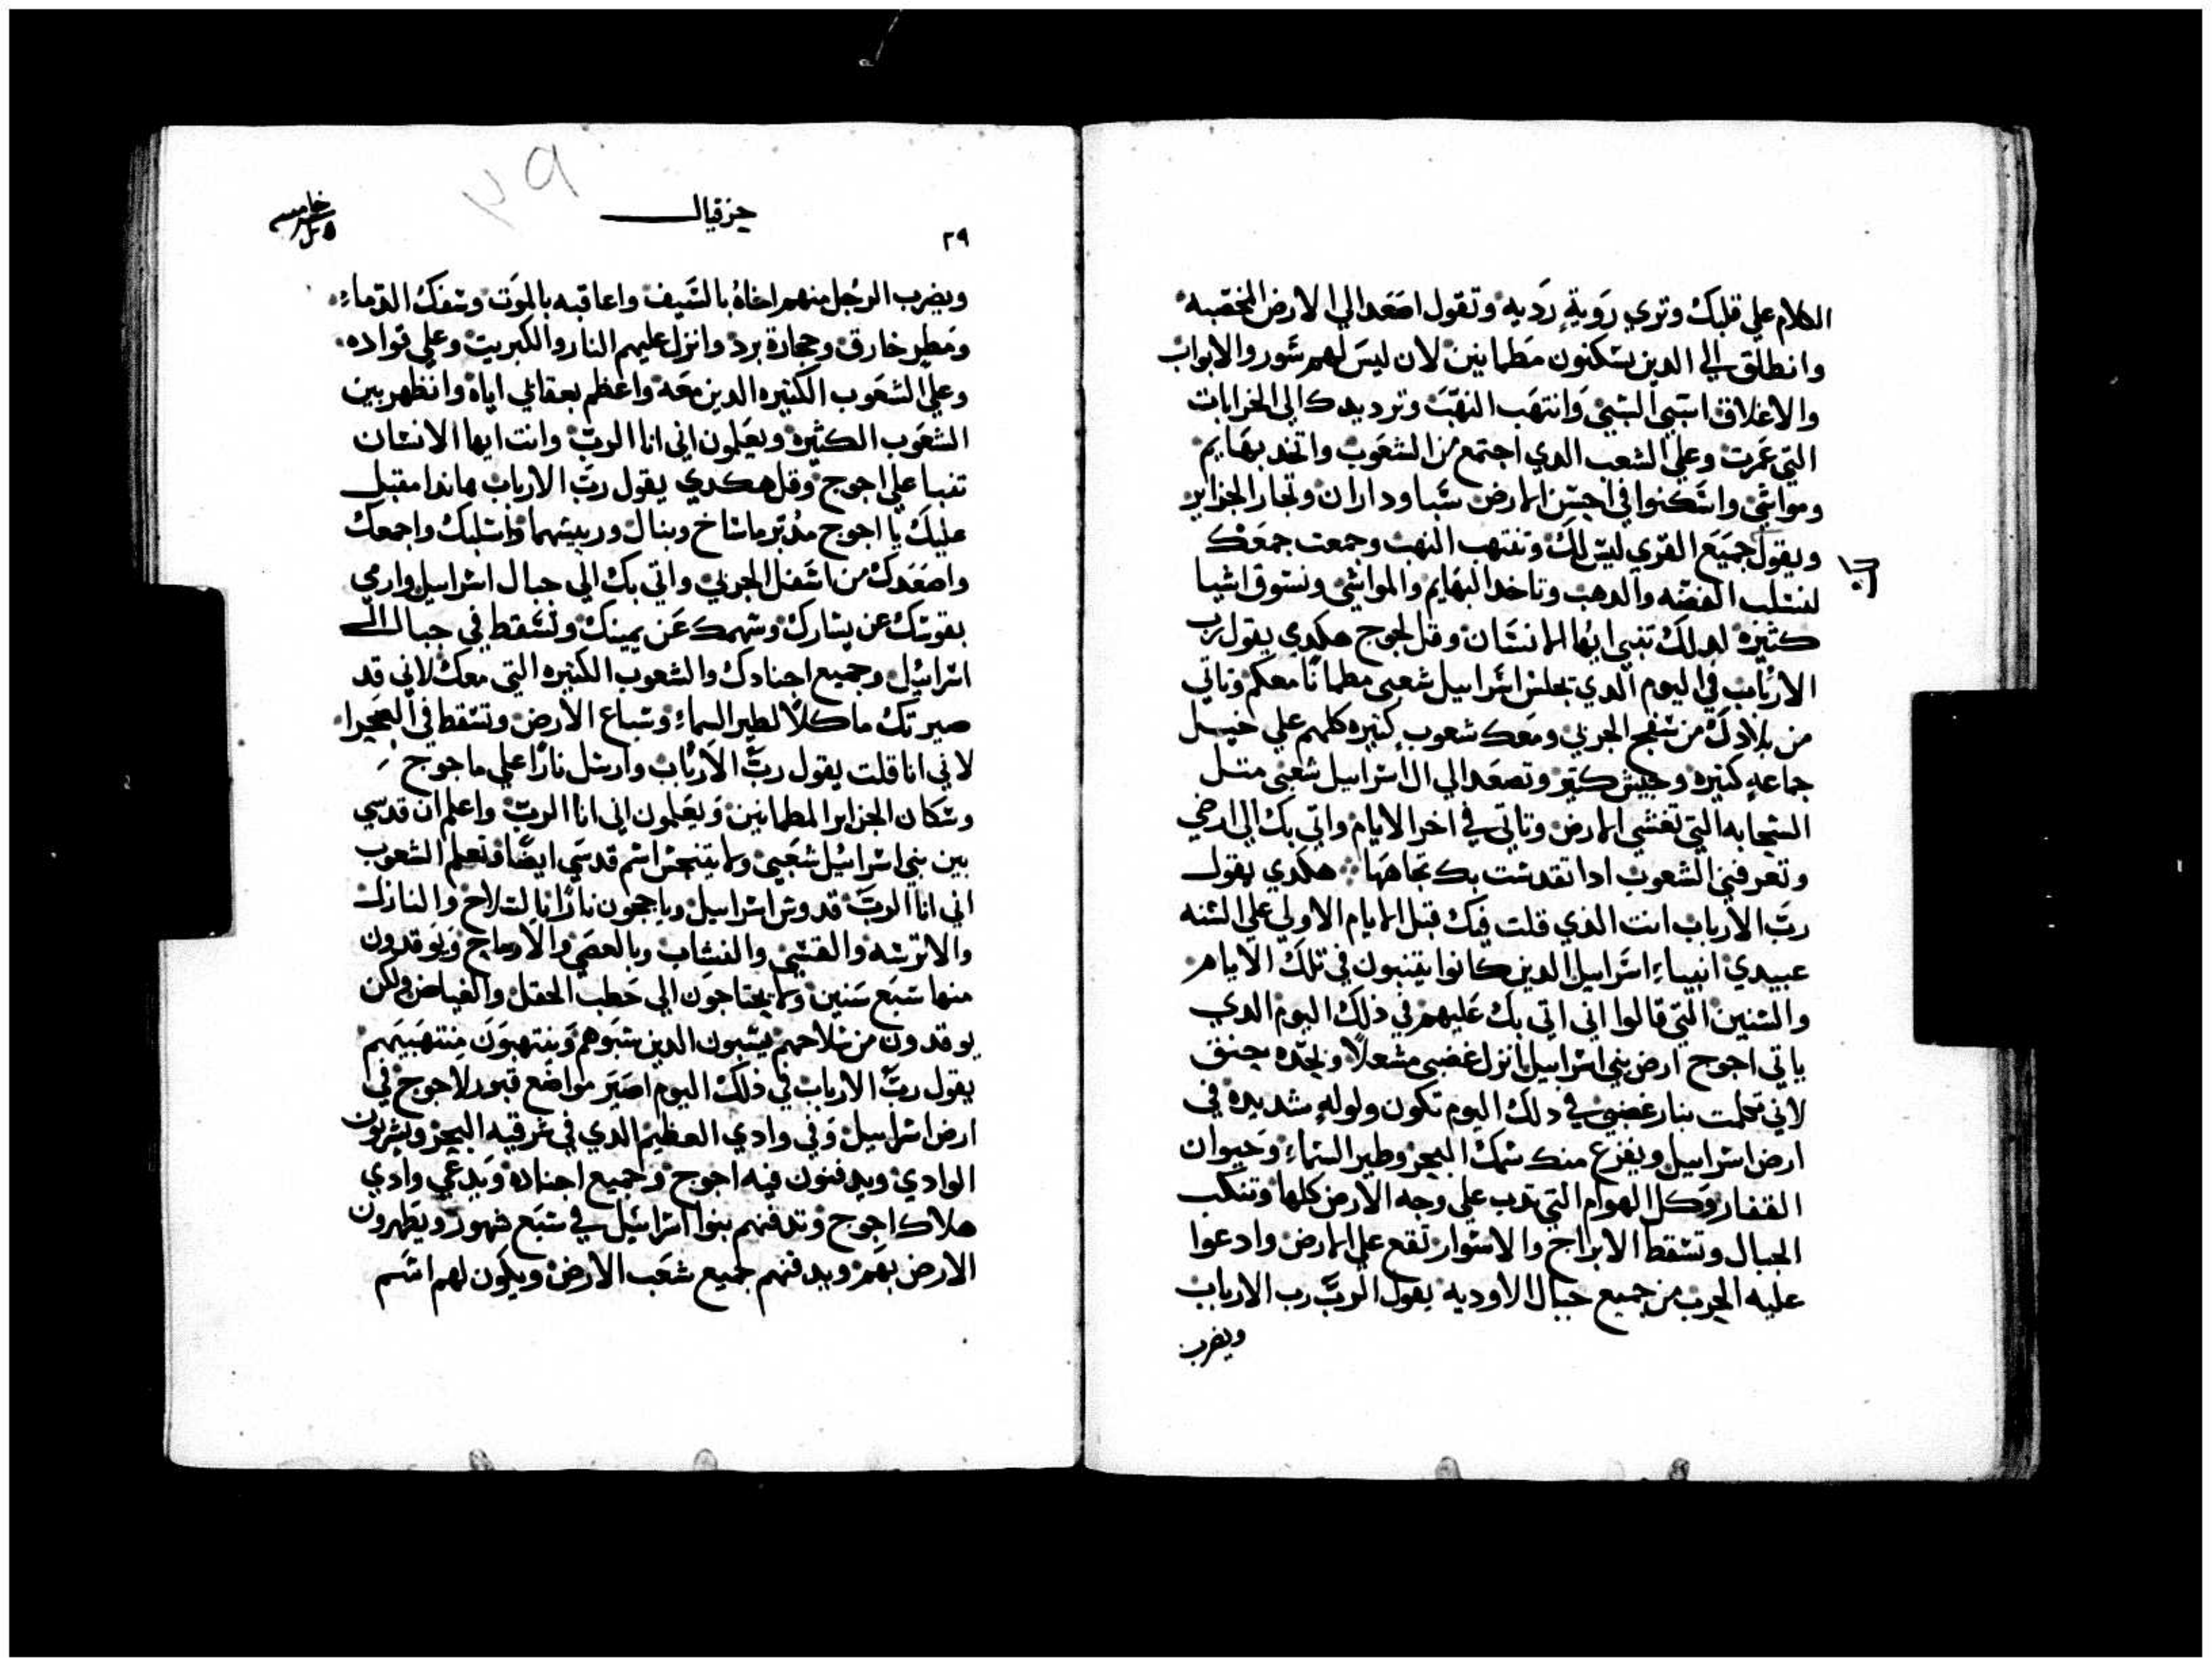 الكلام علي قلبك وتري روية ردية وتقول اصعد الي الارض المخصبه
وانطلق الي الدين يسكنون مطمانين لان ليس لهم سور والابواب
والاغلاق استبي السبي وانتهب النهب وترد يدك الي الخرابات
التي عمرت وعلي الشعب الدي اجتمع من الشعوب واتخد بهايم
ومواشي واسكنوا في احسن الارض سبا وداران وتجار الجزاير
ويقول جميع القري ليس لك وتنتهب النهب وجمعت جمعك
لتسلب الفضه والدهب وتاخد البهايم والمواشي وتسوق اشيا
كثيره لدلك تنبي ايها الانسان وقل لجوج هكدي يقول رب
الارباب في اليوم الدي تجلس اسراييل شعبي مطمانا معكم وتاتي
من بلادك من سفح الجربي ومعك شعوب كثيره كلهم علي خيل
جماعه كثيره وجيش كثير وتصعد الي ال اسراييل شعبي مثل
السحابه التي تغشي الارض وتاتي في اخر الايام واتي بك الي ارضي
وتعرفني الشعوب ادا تقدست بك تجاهها هكدي يقول
رب الارباب انت الذي قلت فيك قبل الايام الاولي علي السنه
عبيدي انبياء اسراييل الدين كانوا يتنبون في تلك الايام
والسنين التي قالوا اني اتي بك عليهم في ذلك اليوم الدي
ياتي اجوج ارض بني اسراييل انزل غضبي مشعلا وبحده بحنق
لاني تكلمت بنار غضبي في دلك اليوم تكون ولوله شديده في
ارض اسراييل ويفزع منك سمك البحر وطير السماء وحيوان
القفار وكل الهوام التي تدب علي وجه الارض كلها وتنكب
الجبال وتسقط الابراج والاسوار تقع علي الارض وادعوا
عليه الحرب من جميع جبال الاوديه يقول الرب رب الارباب
ويضرب
خامس
حزقيال
٢٩
٢٩
ويضرب الرجل منهم اخاه بالسيف واعاقبه بالموت وسفك الدماء
ومطر خارق وحجارة برد وانزل عليهم النار والكبريت وعلي قواده
وعلي الشعوب الكثيره الدين معه واعظم بعقابي اياه وانظهر بين
الشعوب الكثيره ويعلمون اني انا الرب وانت ايها الانسان
تنبا علي اجوج وقل هكدي يقول رب الارباب هاندا مقبل
عليك يا اجوج مدبر ماشاخ وبنال وربيسهما واستلبك واجمعك
واصعدك من اسفل الجربي واتي بك الي جبال اسراييل وارمي
بقوسك عن يسارك وسهمك عن يمينك وتسقط في جبال ال
اسراييل وجميع اجنادك والشعوب الكثيره التي معك لاني قد
صيرتك ماكلا لطير السماء وسباع الارض وتسقط في الصحرا
لاني انا قلت يقول رب الارباب وارسل نارا علي ماجوج
وسكان الجزاير المطمانين ويعلمون اني انا الرب واعلم ان قدسي
بين بني اسراييل شعبي ولا يتنجس اسم قدسي ايضا وتعلم الشعوب
اني انا الرب قدوس اسراييل وياججون نارا بالسلاح والنازك
والاترسه والقسي والنشاب وبالعصي والارماح ويوقدون
منها سبع سنين ولا يحتاجون الي حطب الحقل والغياض ولكن
يوقدون من سلاحهم يسبون الدين سبوهم وينتهبون منتهبيهم
يقول رب الارباب في ذلك اليوم اصير مواضع قبور لاجوج في
ارض اسراييل وفي وادي العظيم الدي في شرقيه البحر
الوادي ويدفنون فيه اجوج وجميع اجناده ويدعي وادي
هلاك اجوج وتدفنهم بنوا اسراييل في سبع شهور ويطهرون
الارض بهم ويدفنهم جميع شعب الارض ويكون لهم اسم